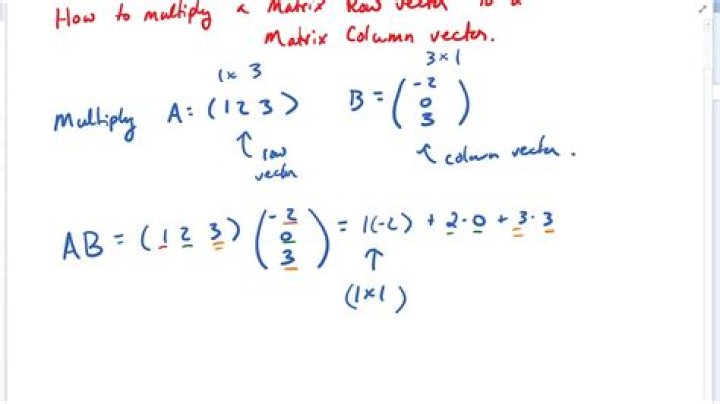 How to multiply a Matrix Row vector to a
Matrix Column vector.
1 x 3
3 x 1
Multiply A = (1 2 3) B = (-2 0 3)
↑ row vector
↑ column vector.
AB = (1 2 3) (-2 0 3) = 1(-2) + 2·0 + 3·3
↑
(1x1)